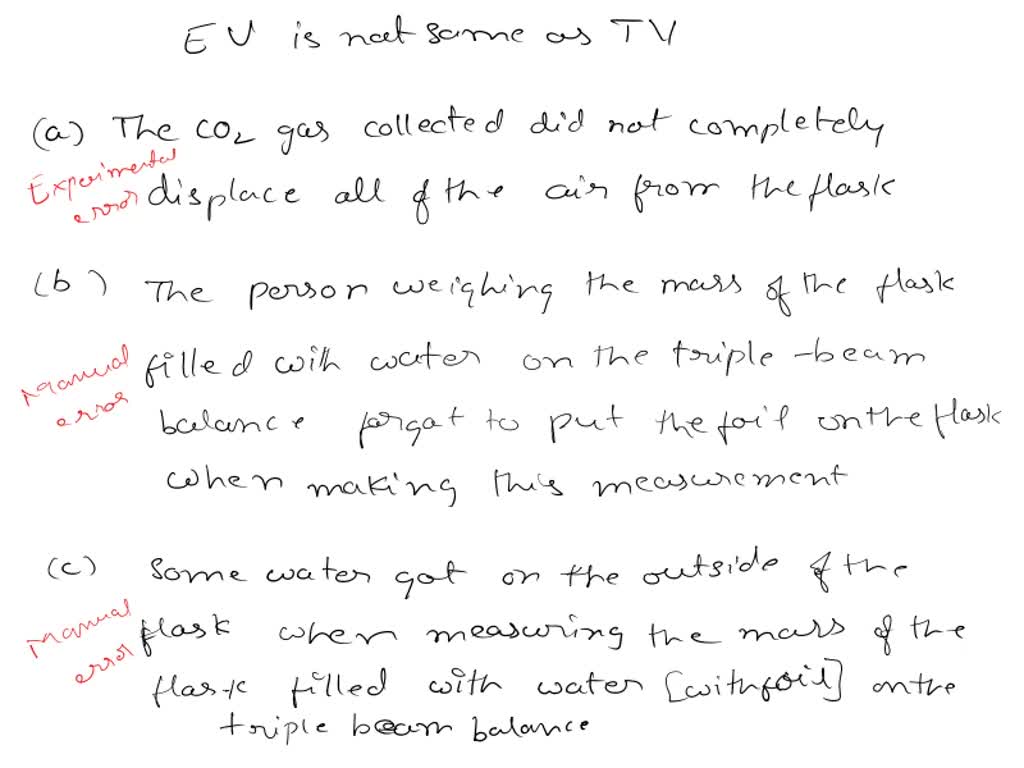 EV is not same as TV
(a) The CO2 gas collected did not completely
Experimental
error
displace all of the air from the flask
(b) The person weighing the mass of the flask
Manual
error
filled with water on the triple-beam
balance forgot to put the foil on the flask
when making this measurement
(c) Some water got on the outside of the
Manual
error
flask when measuring the mass of the
flask filled with water [with foil] on the
triple beam balance